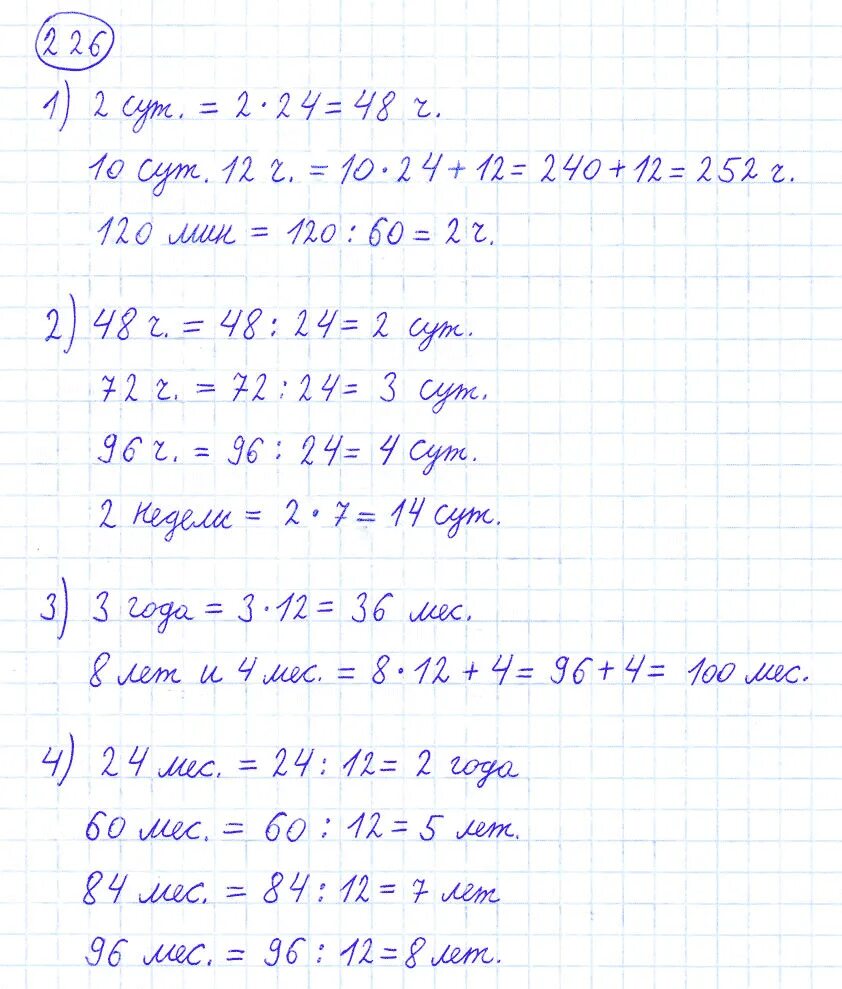 226
1) 2 сут. = 2 · 24 = 48 ч.
10 сут. 12 ч. = 10 · 24 + 12 = 240 + 12 = 252 ч.
120 мин = 120 : 60 = 2 ч.
2) 48 ч. = 48 : 24 = 2 сут.
72 ч. = 72 : 24 = 3 сут.
96 ч. = 96 : 24 = 4 сут.
2 недели = 2 · 7 = 14 сут.
3) 3 года = 3 · 12 = 36 мес.
8 лет и 4 мес. = 8 · 12 + 4 = 96 + 4 = 100 мес.
4) 24 мес. = 24 : 12 = 2 года
60 мес. = 60 : 12 = 5 лет.
84 мес. = 84 : 12 = 7 лет
96 мес. = 96 : 12 = 8 лет.